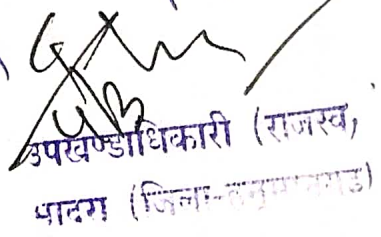 उपखण्डाधिकारी (राजस्व,
भादरा (जिला-हनुमानगढ)